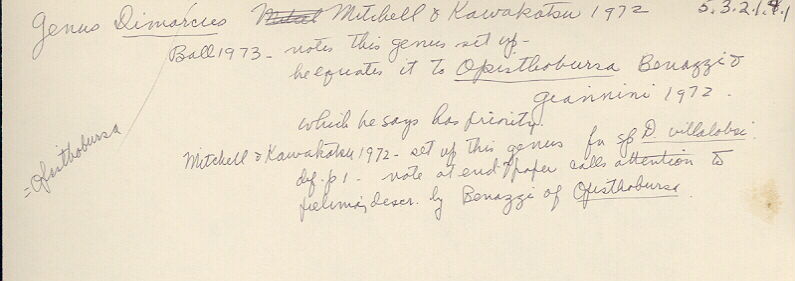 Genus Dimarcus Mitchell & Kawakatsu 1972 5.3.2.1.9.1
Ball 1973 - notes this genus set up -
he equates it to Opisthobursa Benazzi &
Giannini 1972.
which he says has priority.
= Opisthobursa
Mitchell & Kawakatsu 1972 - set up this genus for sp D. villalobosi.
df. p 1 - note at end of paper calls attention to
prelimin descr. by Benazzi of Opisthobursa.